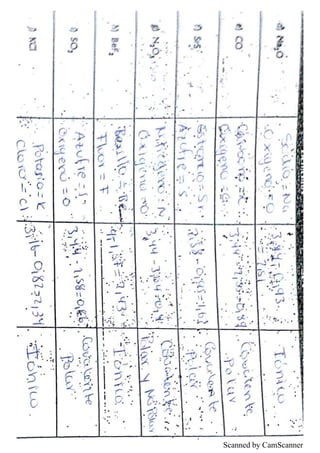 d) Na₂O
Sodio = Na
Oxigeno = O
3,44 - 0,93
= 2,51
Iónico
e) CO
Carbono = C
Oxigeno = O
Covalente
Polar
f) SrS
Estroncio = Sr
Azufre = S
Covalente
Polar
g) N₂O₃
Nitrógeno = N
Oxigeno = O
3,44 - 3,04 = 0,4
Covalente
Polar y No Polar
h) BeF₂
Berilio = Be
Fluor = F
Iónico
i) SO₂
Azufre = S
Oxigeno = O
3,44 - 2,58 = 0,86
Covalente
Polar
j) KCl
Potasio = K
Cloro = Cl
3,16 - 0,82 = 2,34
Iónico.
Scanned by CamScanner